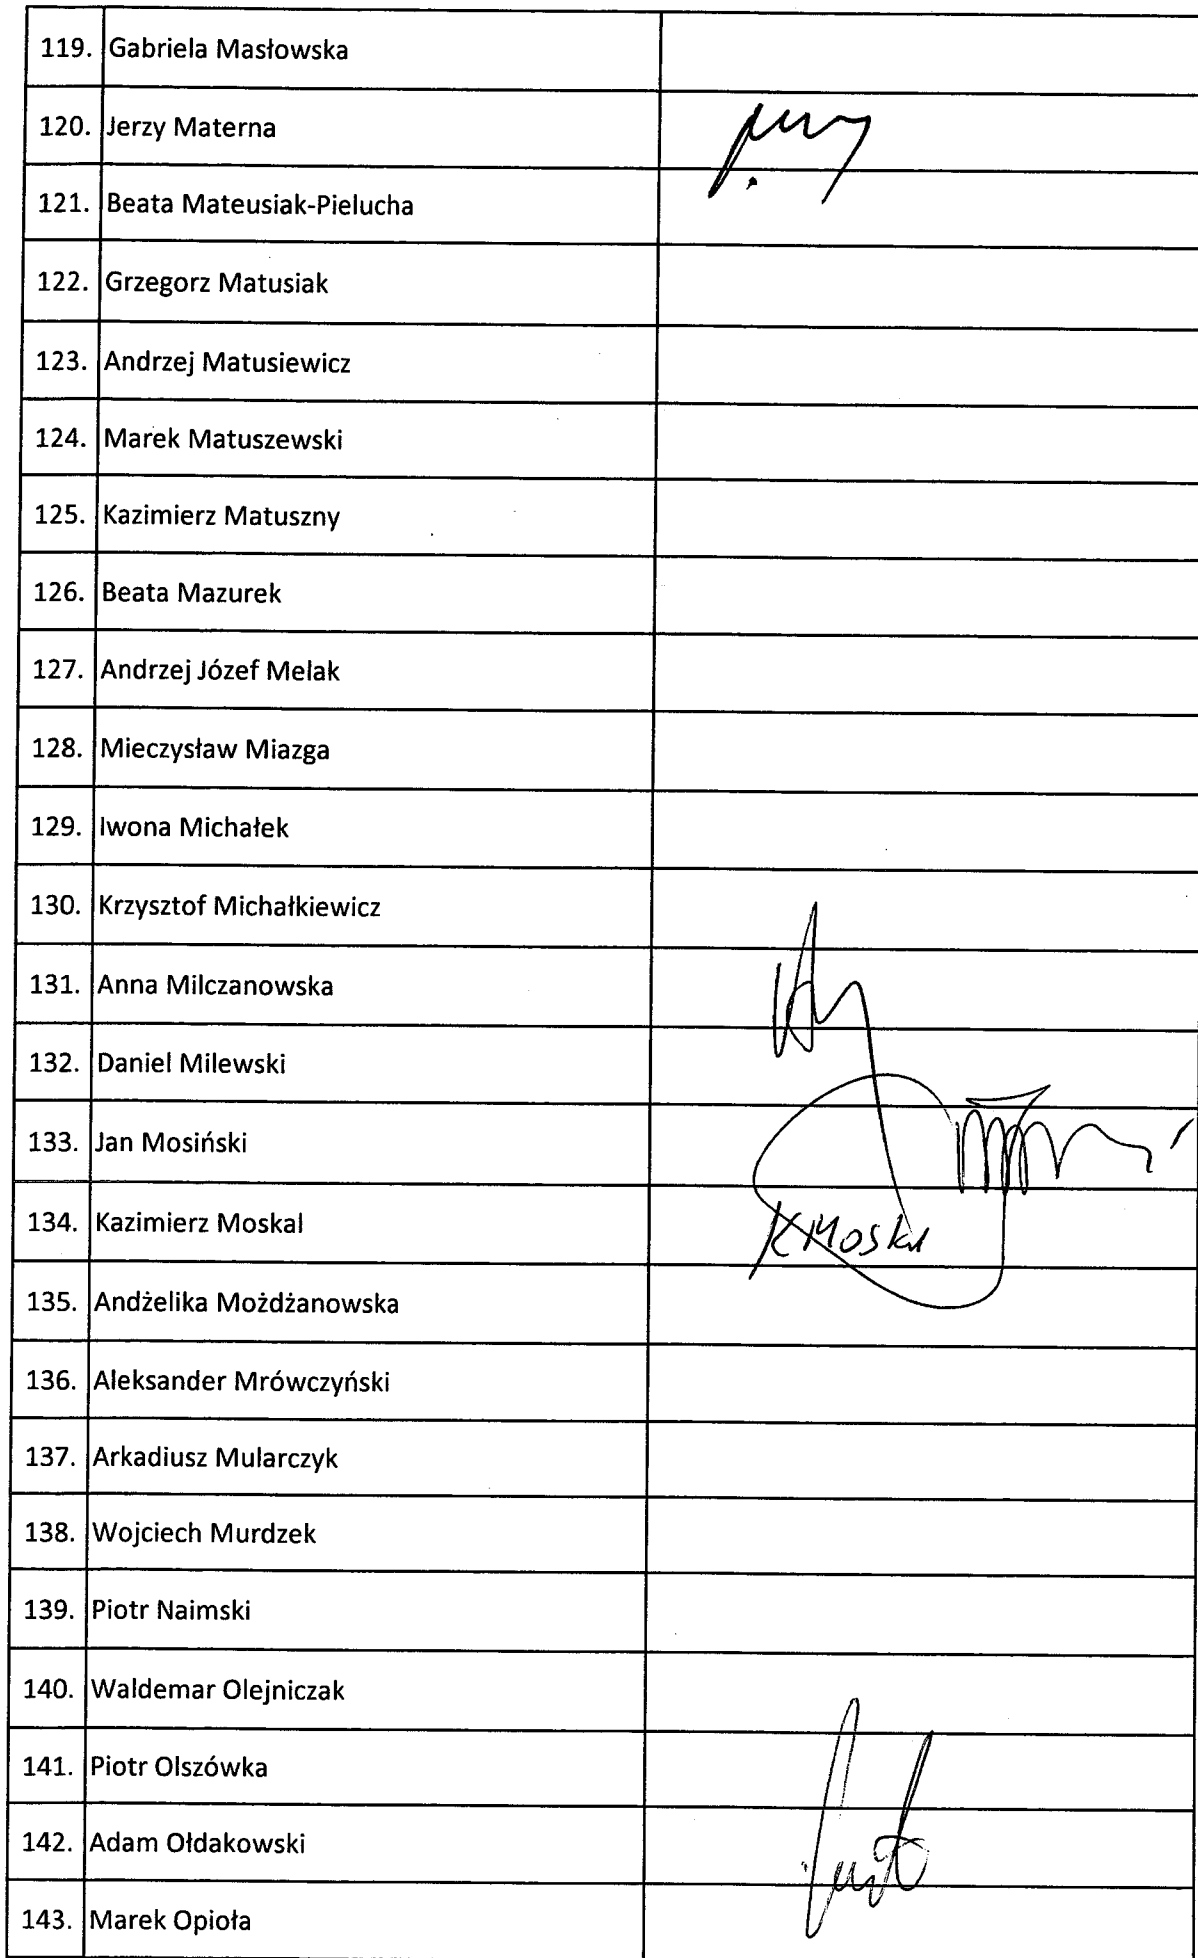 119. Gabriela Masłowska
120. Jerzy Materna
121. Beata Mateusiak-Pielucha
122. Grzegorz Matusiak
123. Andrzej Matusiewicz
124. Marek Matuszewski
125. Kazimierz Matuszny
126. Beata Mazurek
127. Andrzej Józef Melak
128. Mieczysław Miazga
129. Iwona Michałek
130. Krzysztof Michałkiewicz
131. Anna Milczanowska
132. Daniel Milewski
133. Jan Mosiński
134. Kazimierz Moskal K Moskal
135. Andżelika Możdżanowska
136. Aleksander Mrówczyński
137. Arkadiusz Mularczyk
138. Wojciech Murdzek
139. Piotr Naimski
140. Waldemar Olejniczak
141. Piotr Olszówka
142. Adam Ołdakowski
143. Marek Opioła